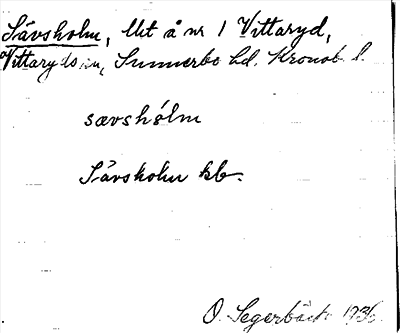 Sävsholm, lht å nr 1 Vittaryd,
Vittaryds sn, Sunnerbo hd. Kronob. l.
sævshólm
Sävsholm kb.
O. Segerbäck 1936